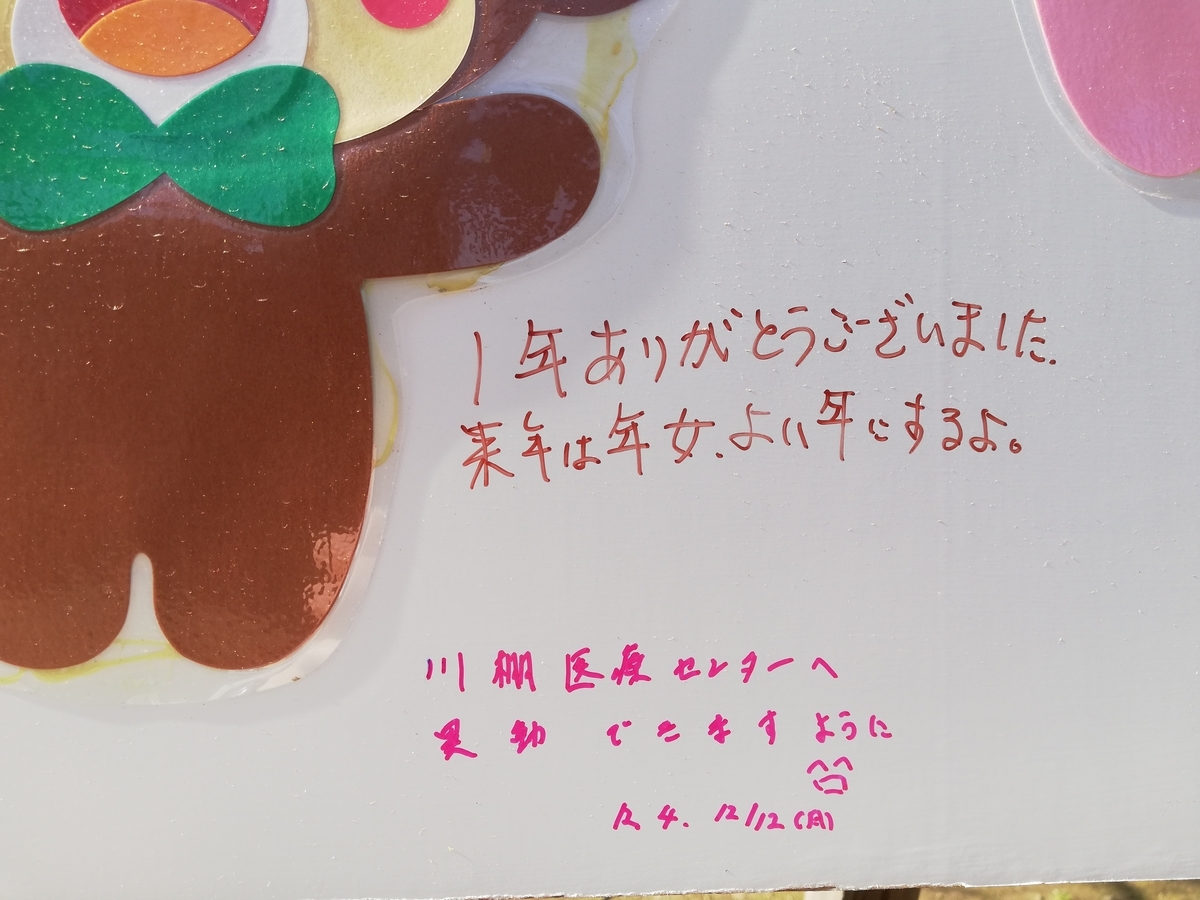 1年ありがとうございました.
来年は年女、よい年にするよ。
川棚医療センターへ
異動できますように
R4. 12/12(月)